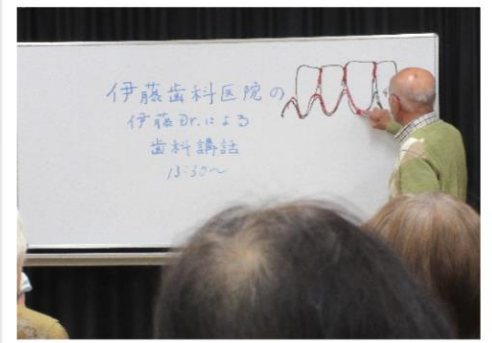 伊藤歯科医院の
伊藤Dr.による
歯科講話
13:30～